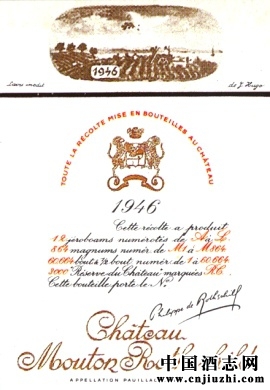 1946
dessin inédit
de J. Hugo
TOUTE LA RÉCOLTE MISE EN BOUTEILLES AU CHÂTEAU
1946
Cette récolte a produit
12 jéroboams numérotés de A à L
864 magnums numér. de M1 à M864
60.664 bout & ½ bout numér. de 1 à 60.664
2000 "Réserve du Château" marquées R.C.
Cette bouteille porte le No
Philippe de Rothschild
Château
Mouton Rothschild
APPELLATION PAUILLAC
中国酒志网
www.cnjiuzhi.com